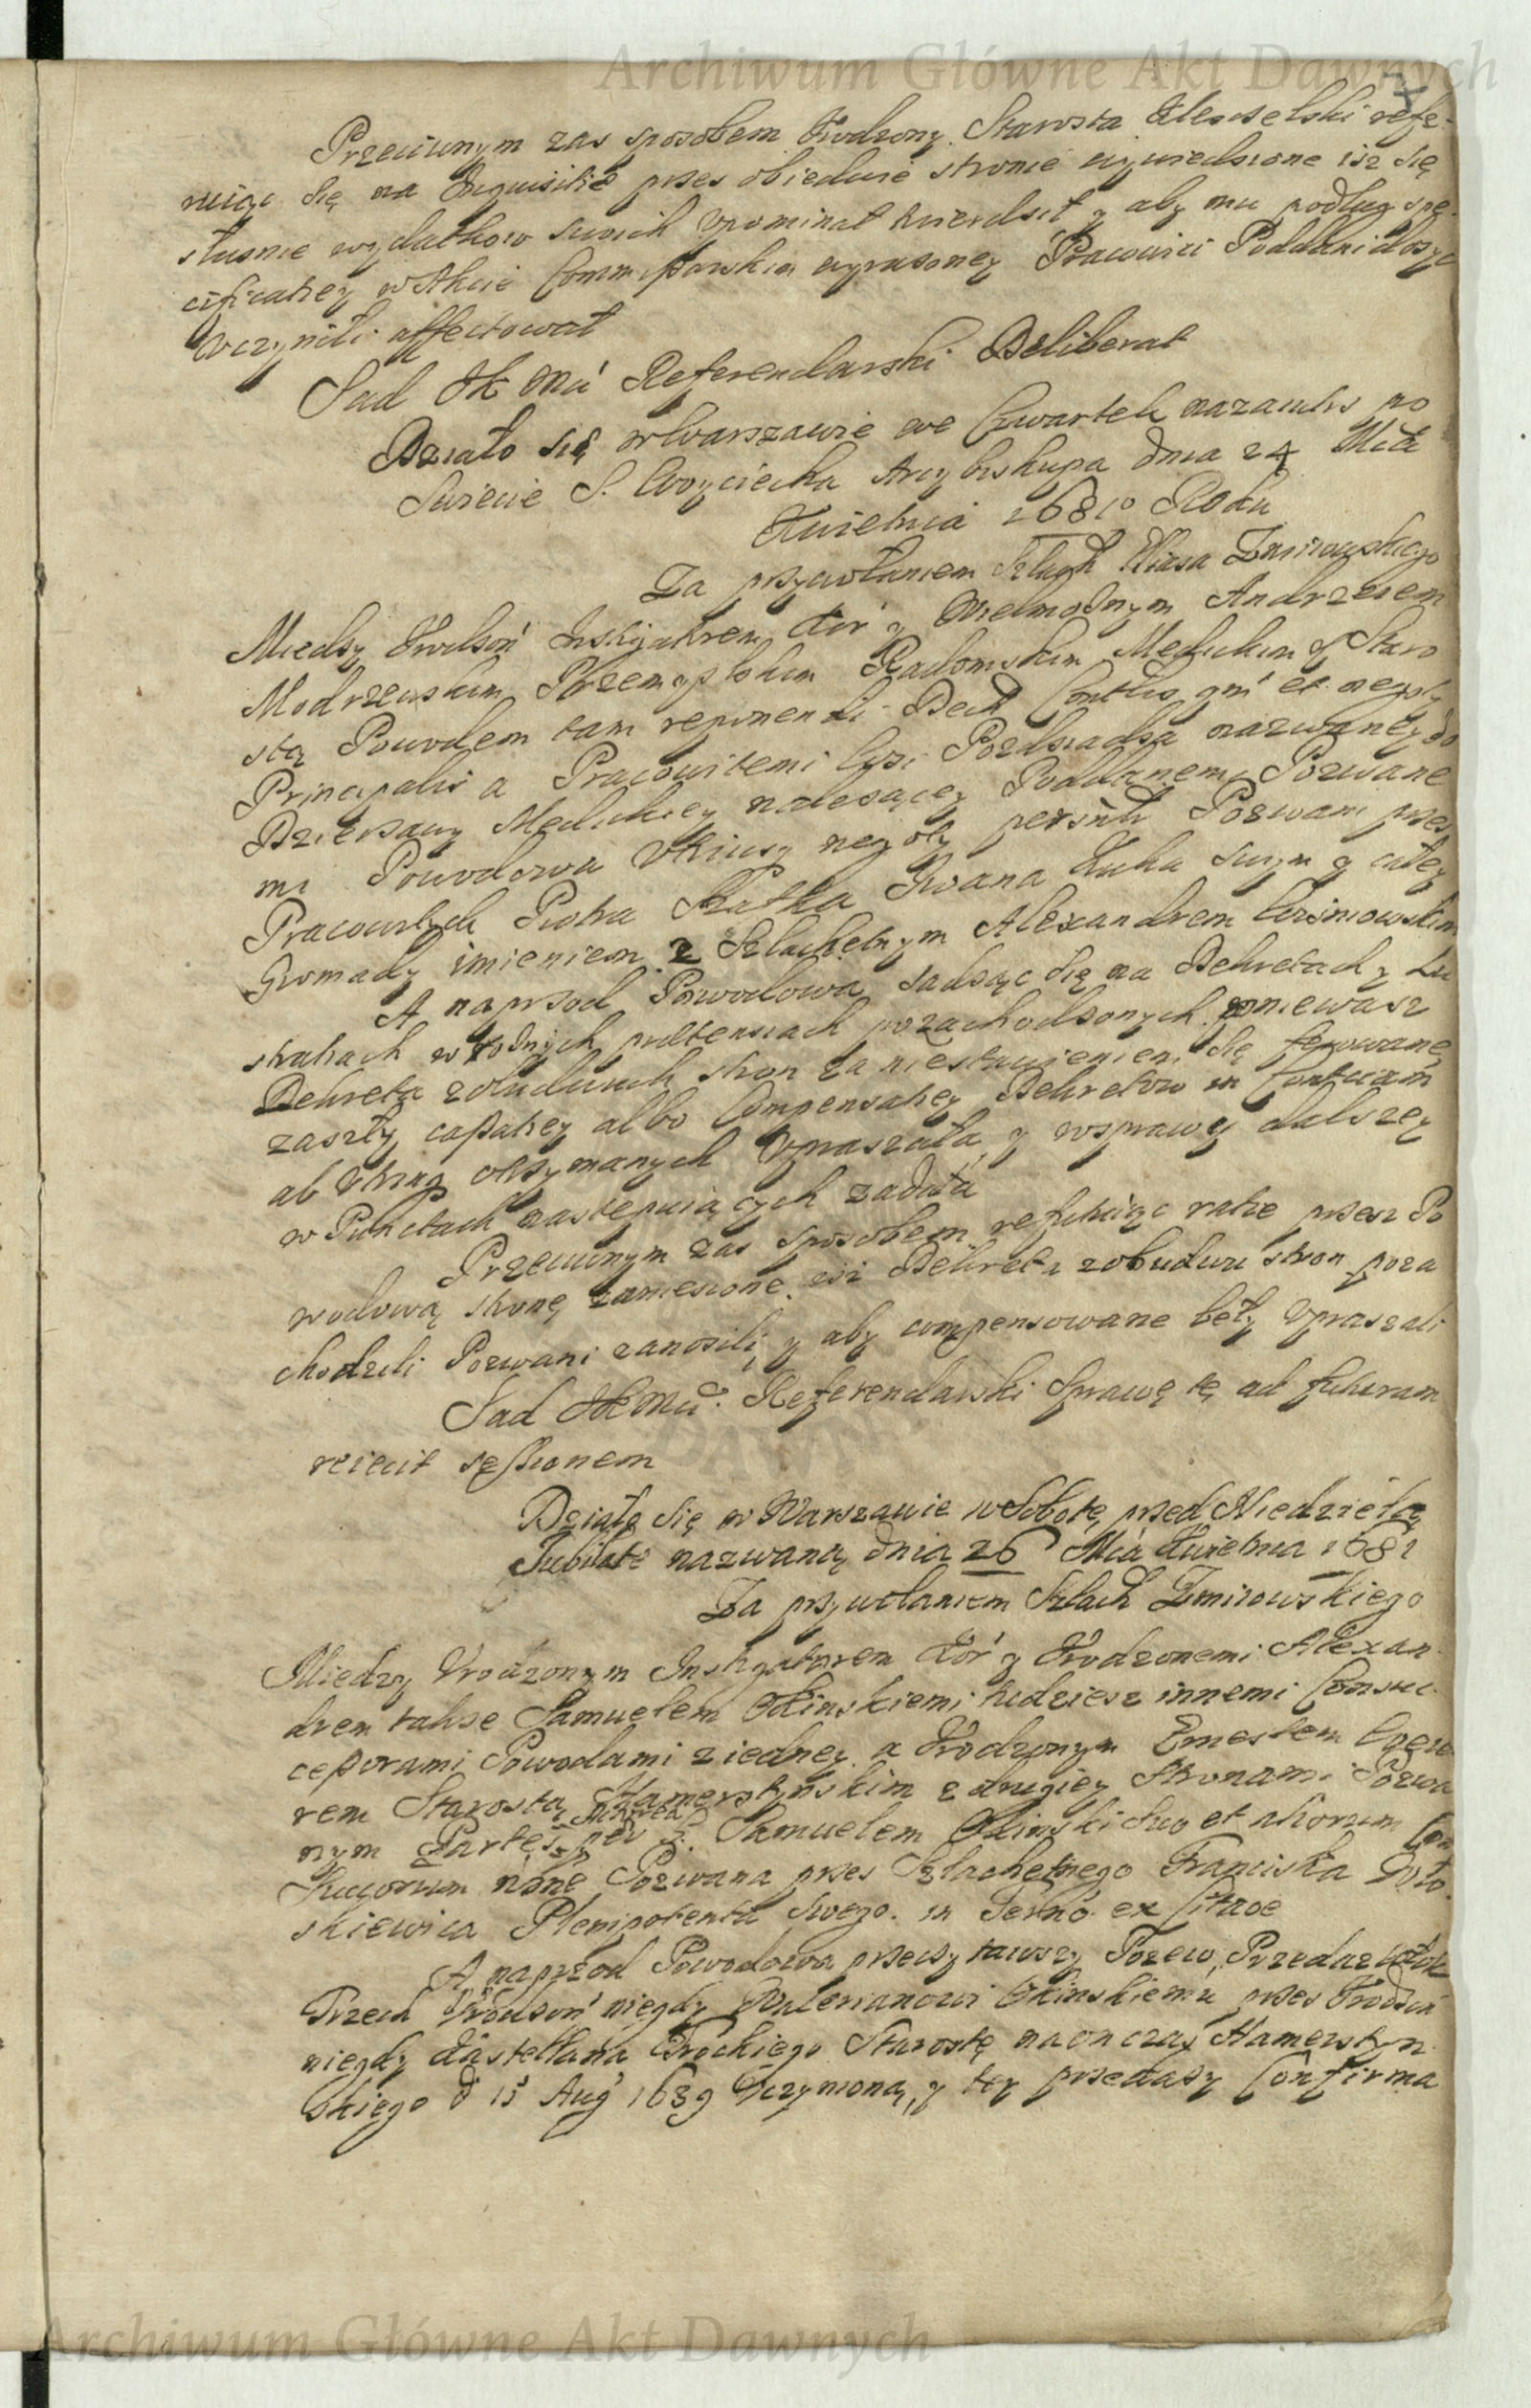 Archiwum Główne Akt Dawnych
Przeciwnym zas sposobem Urodzony Starosta refe-
ruiąc się na Inquisitie przes obiedwie stronie wywiedzione isz się
słusnie wydatkow swoich upominał twierdził y aby mu podług spe-
cificatiey w Akcie Commissarskim wyrazoney Pracowici Poddani dosyc
uczynili affectował
Sad JK Mci Referendarski Deliberat
Działo się w Warszawie we Czwartek nazaiutrz po
Swięcie S. Woyciecha Arcybiskupa dnia 24 Mca
Kwietnia 1681 Roku
Za przywołaniem Szlach Eliasa Zmirowskiego
Miedzy Urodzoń Instigatorem Kor y Wielmoznym Andrzeiem
Modrzewskim Przemyslskim Radomskim Medickim Staro
stą Powodem tam reponendi Decti Contlis gni et negoty
Principalis a Pracowitemi Wsi Pozdziadza nazwaney do
Dzierzawy Medickiey nalezącey Poddanemi Pozwane
mi Powodowa negoty Pozwani przes
Pracowitych Piotra Iwana Luka swym y całey
Gromady imieniem z Szlachetnym Alexandrem
A naprzod Powodowa sadząc się na Dekretach y
stratach w rożnych praetensiach pozachodzonych poniewasz
Dekreta z obudwuch stron za niestawieniem się ferowane
zaszły cassatiey albo Compensatiey Dekretow in Contciam
ab utrinq otrzymanych upraszała y w sprawy dalszey
w Punctach nastepuiących zadała
Przeciwnym zas sposobem refutuiąc ratie przesz Po
wodową stronę zaniesione isz Dekreta z obudwu stron poza
chodzili Pozwani zanosili y aby compensowane beły upraszali
Sad JKMci Referendarski Sprawę tę ad futuram
reiecit sessionem
Działo się w Warszawie w Sobotę przed Niedzielą
Jubilate nazwaną dnia 26 Mca Kwietnia 1681
Za przywołaniem Szlach Zmirowskiego
Miedzy Urodzonym Instigatorem Kor y Urodzonemi Alexan
drem takze Samuelem Okinskiemi tudziesz innemi Consuc
cessorami Powodami z iedney a Urodzonym Ernestem
rem Starostą Hamersztynskim z drugiey stronami Pozwa
nym Partes per G. Samuelem Okinski suo et aliorum Con
sucorum nōne Pozwana przes Szlachetnego Franciska
skiewica Plenipotenta swego in Termō ex Citaōe
A naprzod Powodowa przeczytawszy Pozew, Przedaz włok
Trzech Urodzoń niegdy Walerianowi Okinskiemu przes Urodzoń
niegdy Kasztellana Trockiego Starostę na on czas Hamersztyn
skiego d 15 Aug 1639 Uczynioną y tey przedazy Confirma
Archiwum Główne Akt Dawnych